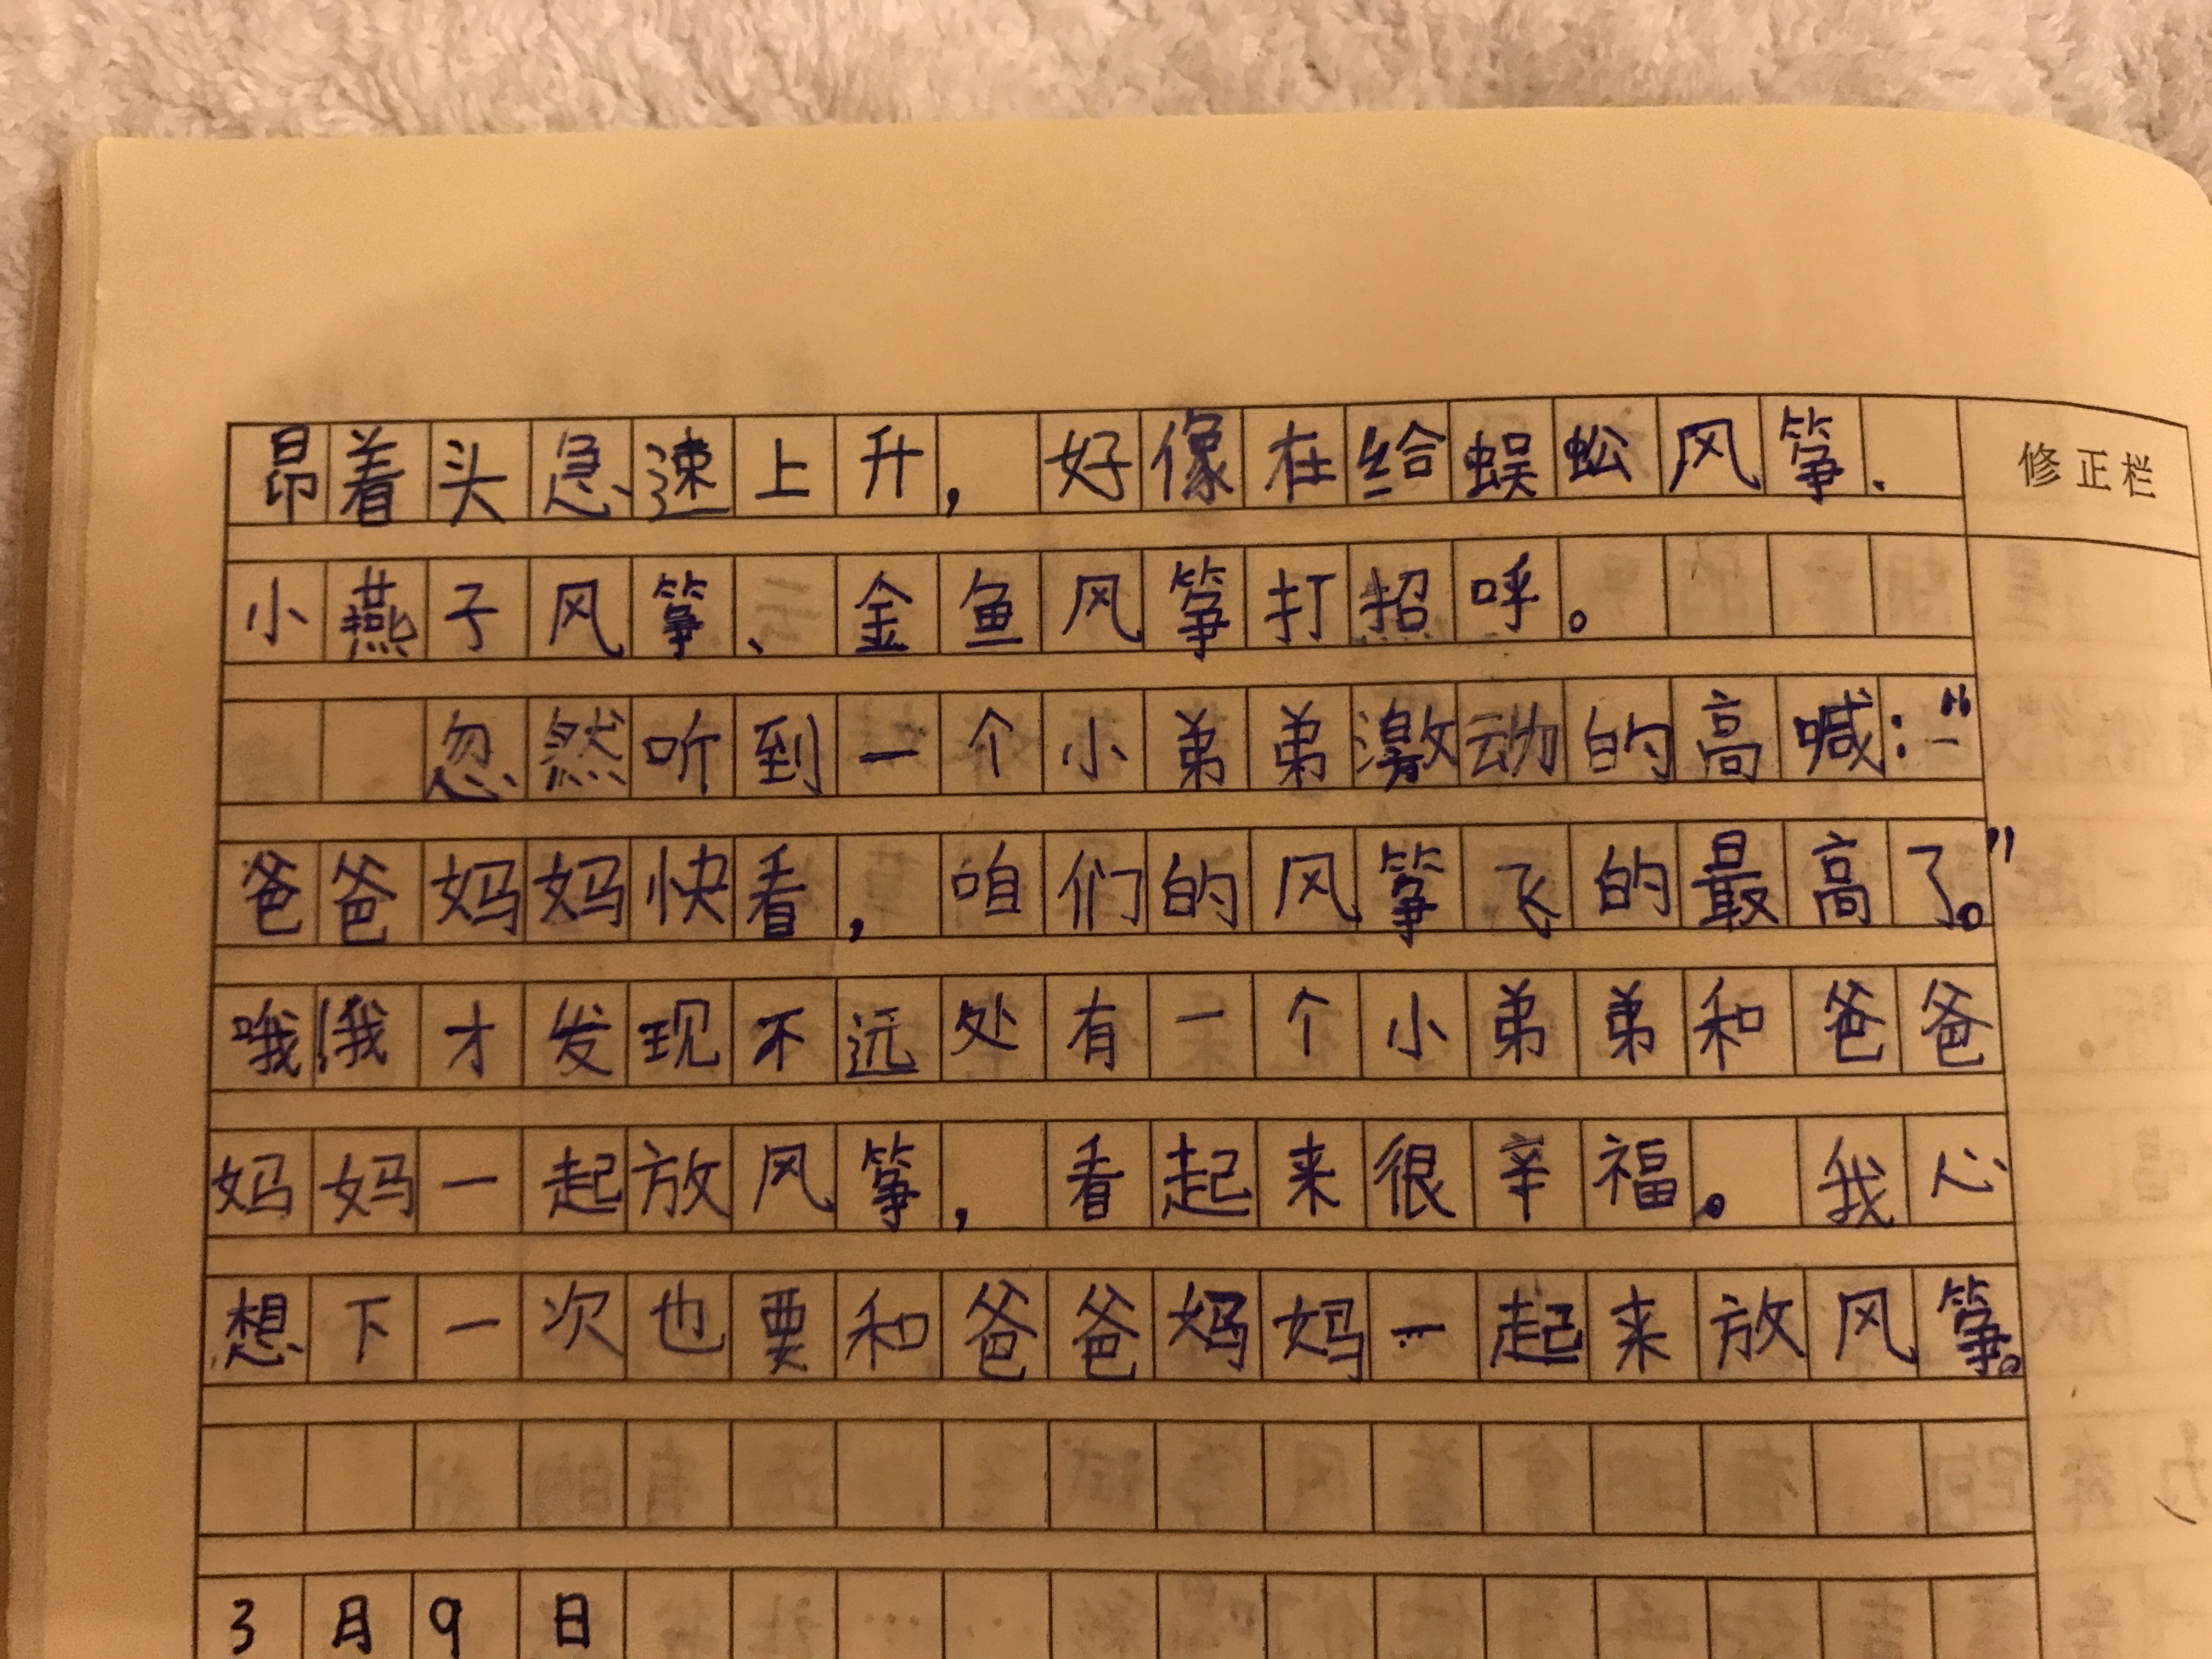 昂着头急速上升，好像在给蜈蚣风筝、
修正栏
小燕子风筝、金鱼风筝打招呼。
忽然听到一个小弟弟激动的高喊：“
爸爸妈妈快看，咱们的风筝飞的最高了。”
哦！我才发现不远处有一个小弟弟和爸爸
妈妈一起放风筝，看起来很辛福。我心
想下一次也要和爸爸妈妈一起来放风筝。
3月9日